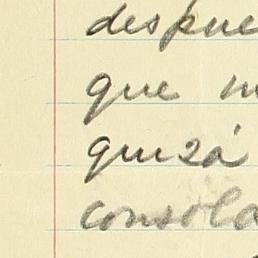 despue
que n
quizá
consola